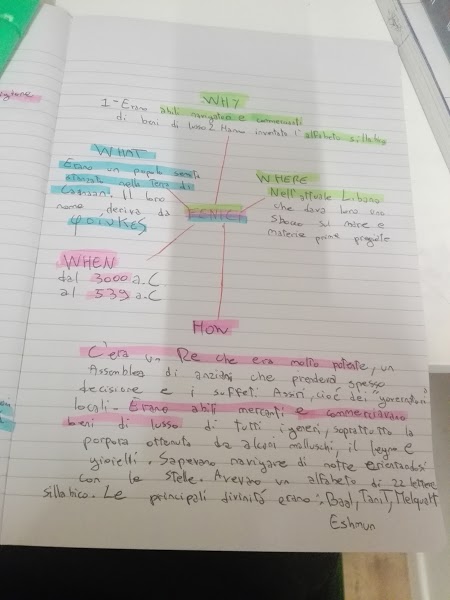 WHY
1-Erano abili navigatori e commercianti
di beni di lusso 2 Hanno inventato l'alfabeto sillabico
WHAT
Erano un popolo semita
stanziato nella Terra di
Canaan. Il loro
nome deriva da
WHERE
Nell'attuale Libano
che dava loro uno
sbocco sul mare e
materie prime pregiate
FENICI
WHEN
dal 3000 a.C
al 539 a.C
HOW
C'era un Re che era molto potente, un
Assemblea di anziani che prendeva spesso
decisione e i suffeti Assiri, cioè dei "governatori"
locali. Erano abili mercanti e commerciavano
beni di lusso di tutti i generi, soprattutto la
porpora ottenuta da alcuni molluschi, il legno e
gioielli. Sapevano navigare di notte orientandosi
con le stelle. Avevano un alfabeto di 22 lettere
sillabico. Le principali divinità erano: Baal, Tanit, Melquart
Eshmun